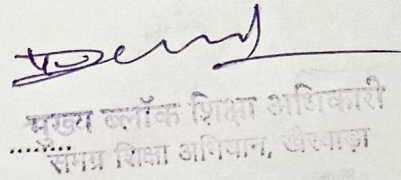 मुख्य ब्लॉक शिक्षा अधिकारी
समग्र शिक्षा अभियान, खैरवाड़ा